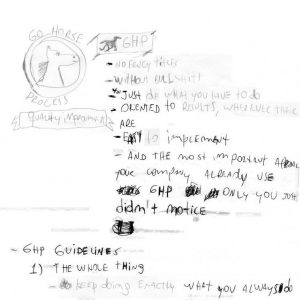 GO HORSE
PROCESS
QUALITY
GHP
- NO FENCY TITLES
- WITHOUT BULLSHITT
- JUST DO WHAT YOU HAVE TO DO
- ORIENTED TO RESULTS, WHEREVER THEIR
- ARE
- IS IMPLEMENT
- AND THE MOST IMPORTANT
YOUR COMPANY ALREADY USE
GHP ONLY YOU JUST
didn't NOTICE
- GHP GUIDELINES
1) THE WHOLE THING
- KEEP DOING EXACTLY WHAT YOU ALWAYS DO